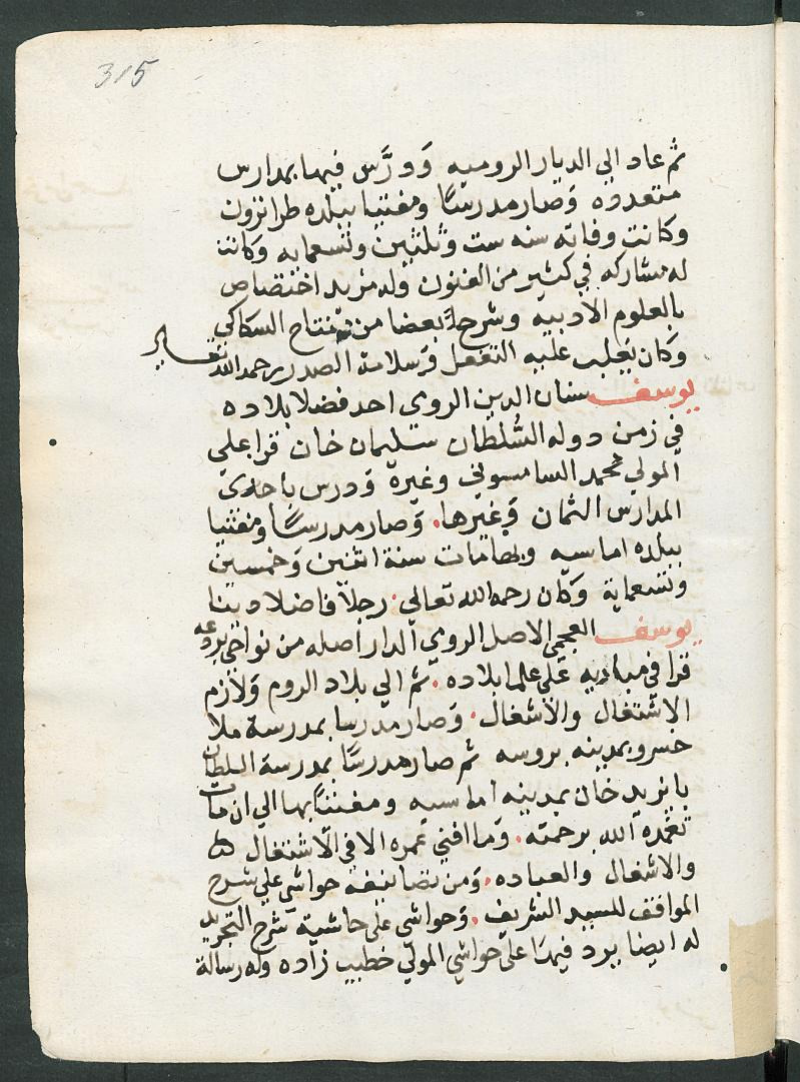 315
ثم عاد الي الديار الروميه وَدرَّس فيها بمدارس
متعدده وَصار مدرسًا ومفتيا ببلده طرابزون
وكانت وفاته سنه ست وثلثين وتسعمايه وكانت
له مشاركه في كثير من الفنون وله مزيد اختصاص
بالعلوم الادبية وشرح بعضا من مفتاح السكاكي
وكان يغلب عليه التغفل وسلامة الصدر رحمه الله تعالي
يوسف سنان الدين الرومي احد فضلا بلاده
في زمن دوله السُّلطان سليمان خان قرا علي
المولي محمد السامسوني وغيره وَدرس باحدي
المدارس الثمان وَغيرها. وَصار مدرسًا ومفتيا
ببلده اماسيه وبها مات سنة اثنين وَخمسين
وتسعماية وَكان رحمه الله تعالي. رجلاً فاضلا دينا
يوسف العجمي الاصل الرومي الدار اصله من نواحي بردعه
قرا في مباديه عَلي علما بلاده. ثم الي بلاد الروم وَلازم
الاشتغال والاشغال. وَصار مدرسا بمدرسة ملا
خسرو بمدينه بروسه ثم صار مدرسًا بمدرسة السلطان
بايزيد خان بمدينه اماسيه ومفتيًا بها الي ان مات
تغمده الله برحمته. وَما افني عمره الا في الاشتغال
والاشغال والعباده. وَمن تصانيفه حواشي علي شرح
المواقف للسيد الشريف. وَحواشي علي حاشية شرح التجريد
له ايضا يرد فيهَا علي حواشي المولي خطيب زاده وله رسالة